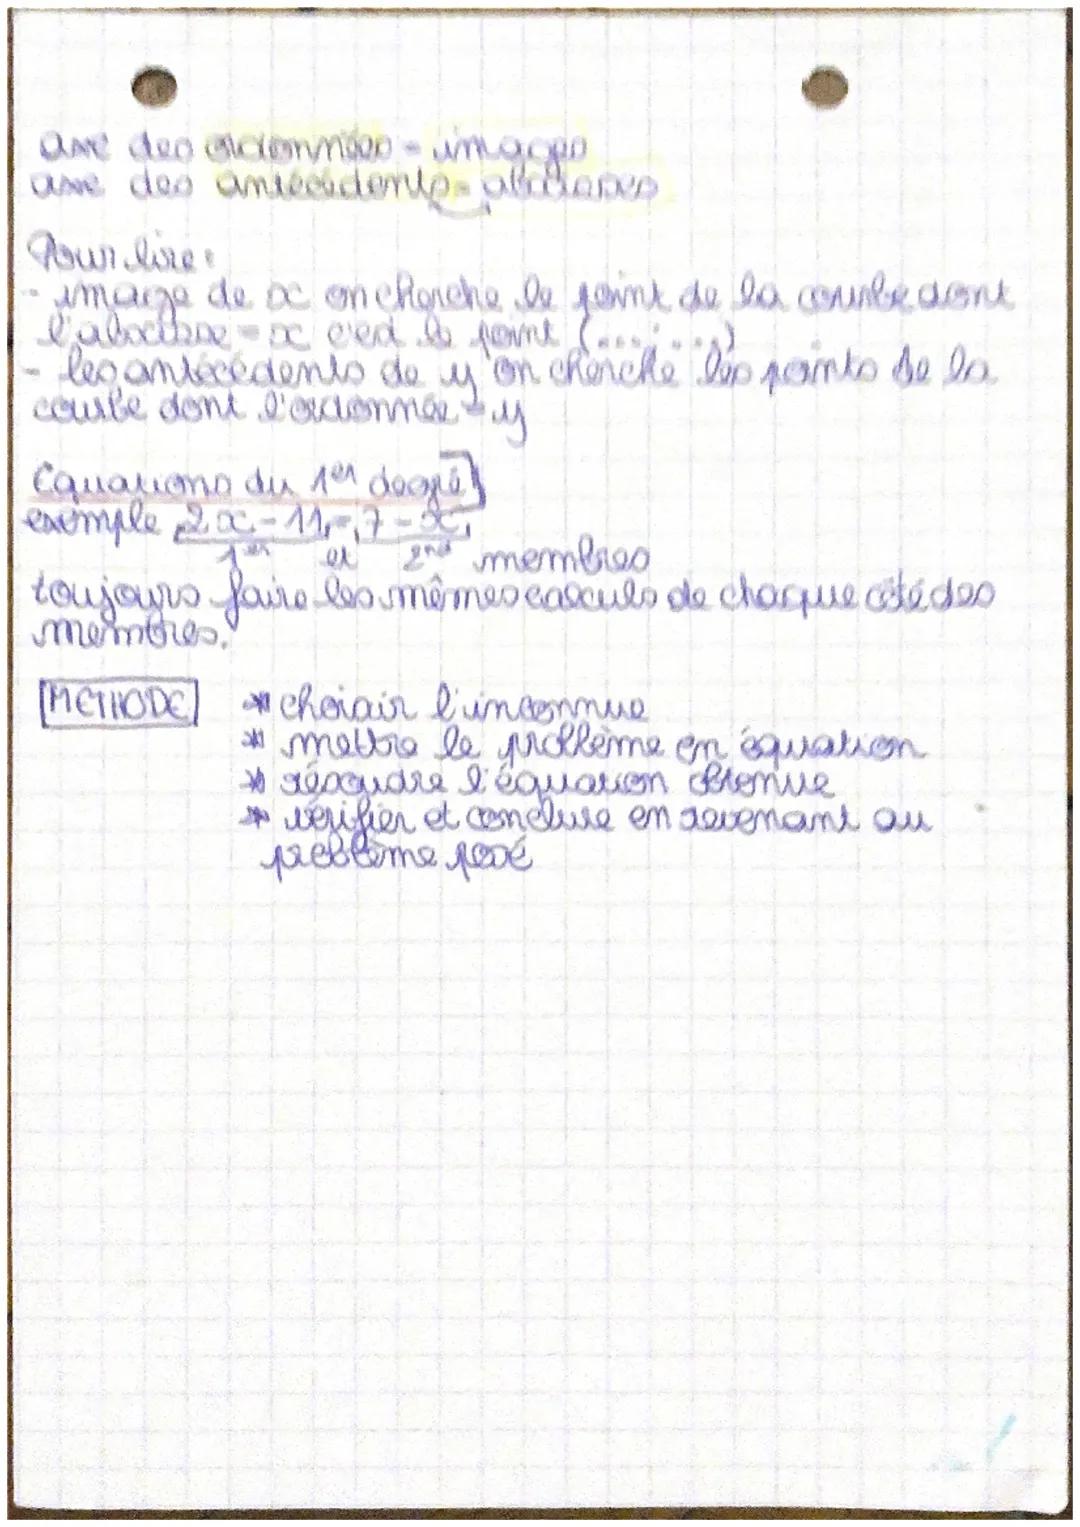 axe des ordonnées = images
axe des antécédents = abscisses
Pour lire :
- image de x on cherche le point de la courbe dont
l'abscisse = x c'est le point (... ; ...)
- les antécédents de y on cherche les points de la
courbe dont l'ordonnée = y
Equations du 1er degré
exemple 2x - 11 = 7 - x
1er et 2nd membres
toujours faire les mêmes calculs de chaque côté des
membres.
METHODE
* choisir l'inconnue
* mettre le problème en équation
* résoudre l'équation obtenue
* vérifier et conclure en revenant au
problème posé